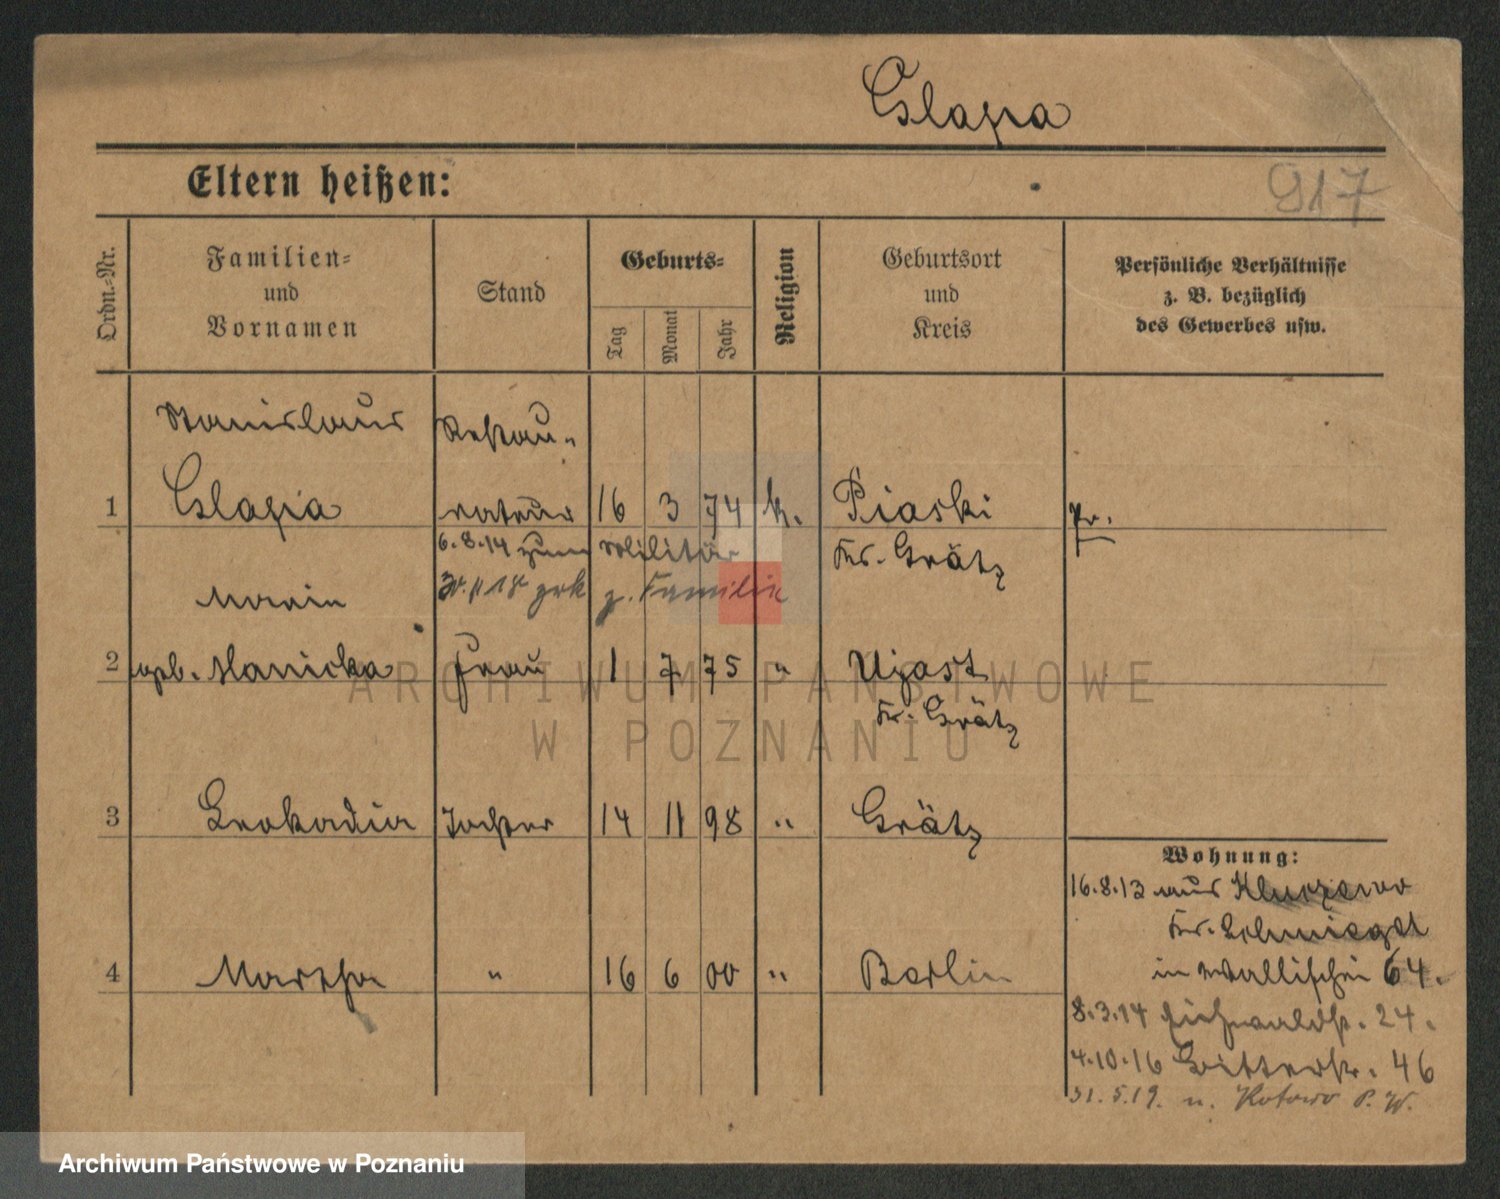 Cslapa
Eltern heißen:
917
Ordn.-Nr.
Familien-
und
Vornamen
Stand
Geburts-
Tag
Monat
Jahr
Religion
Geburtsort
und
Kreis
Persönliche Verhältnisse
z. B. bezüglich
des Gewerbes usw.
Stanislaus Restau-
1 Cslapa rateur 16 3 74 k. Piaski Pr.
6.8.14 zum Militär Kr. Grätz
18 zrk z. Familie
Marie
2 geb. Manicka Frau 1 7 75 " Ujast
Kr. Grätz
3 Leokadia Tochter 14 11 98 " Grätz
Wohnung:
16.8.13 aus Kluczewo
Kr. Schmiegel
4 Martha " 16 6 00 " Berlin in Wallischei 64.
8.3.14 Eichwaldstr. 24.
4.10.16 Bitterstr. 46
31.5.19. n. Kotowo P. W.
ARCHIWUM PAŃSTWOWE
W POZNANIU
Archiwum Państwowe w Poznaniu